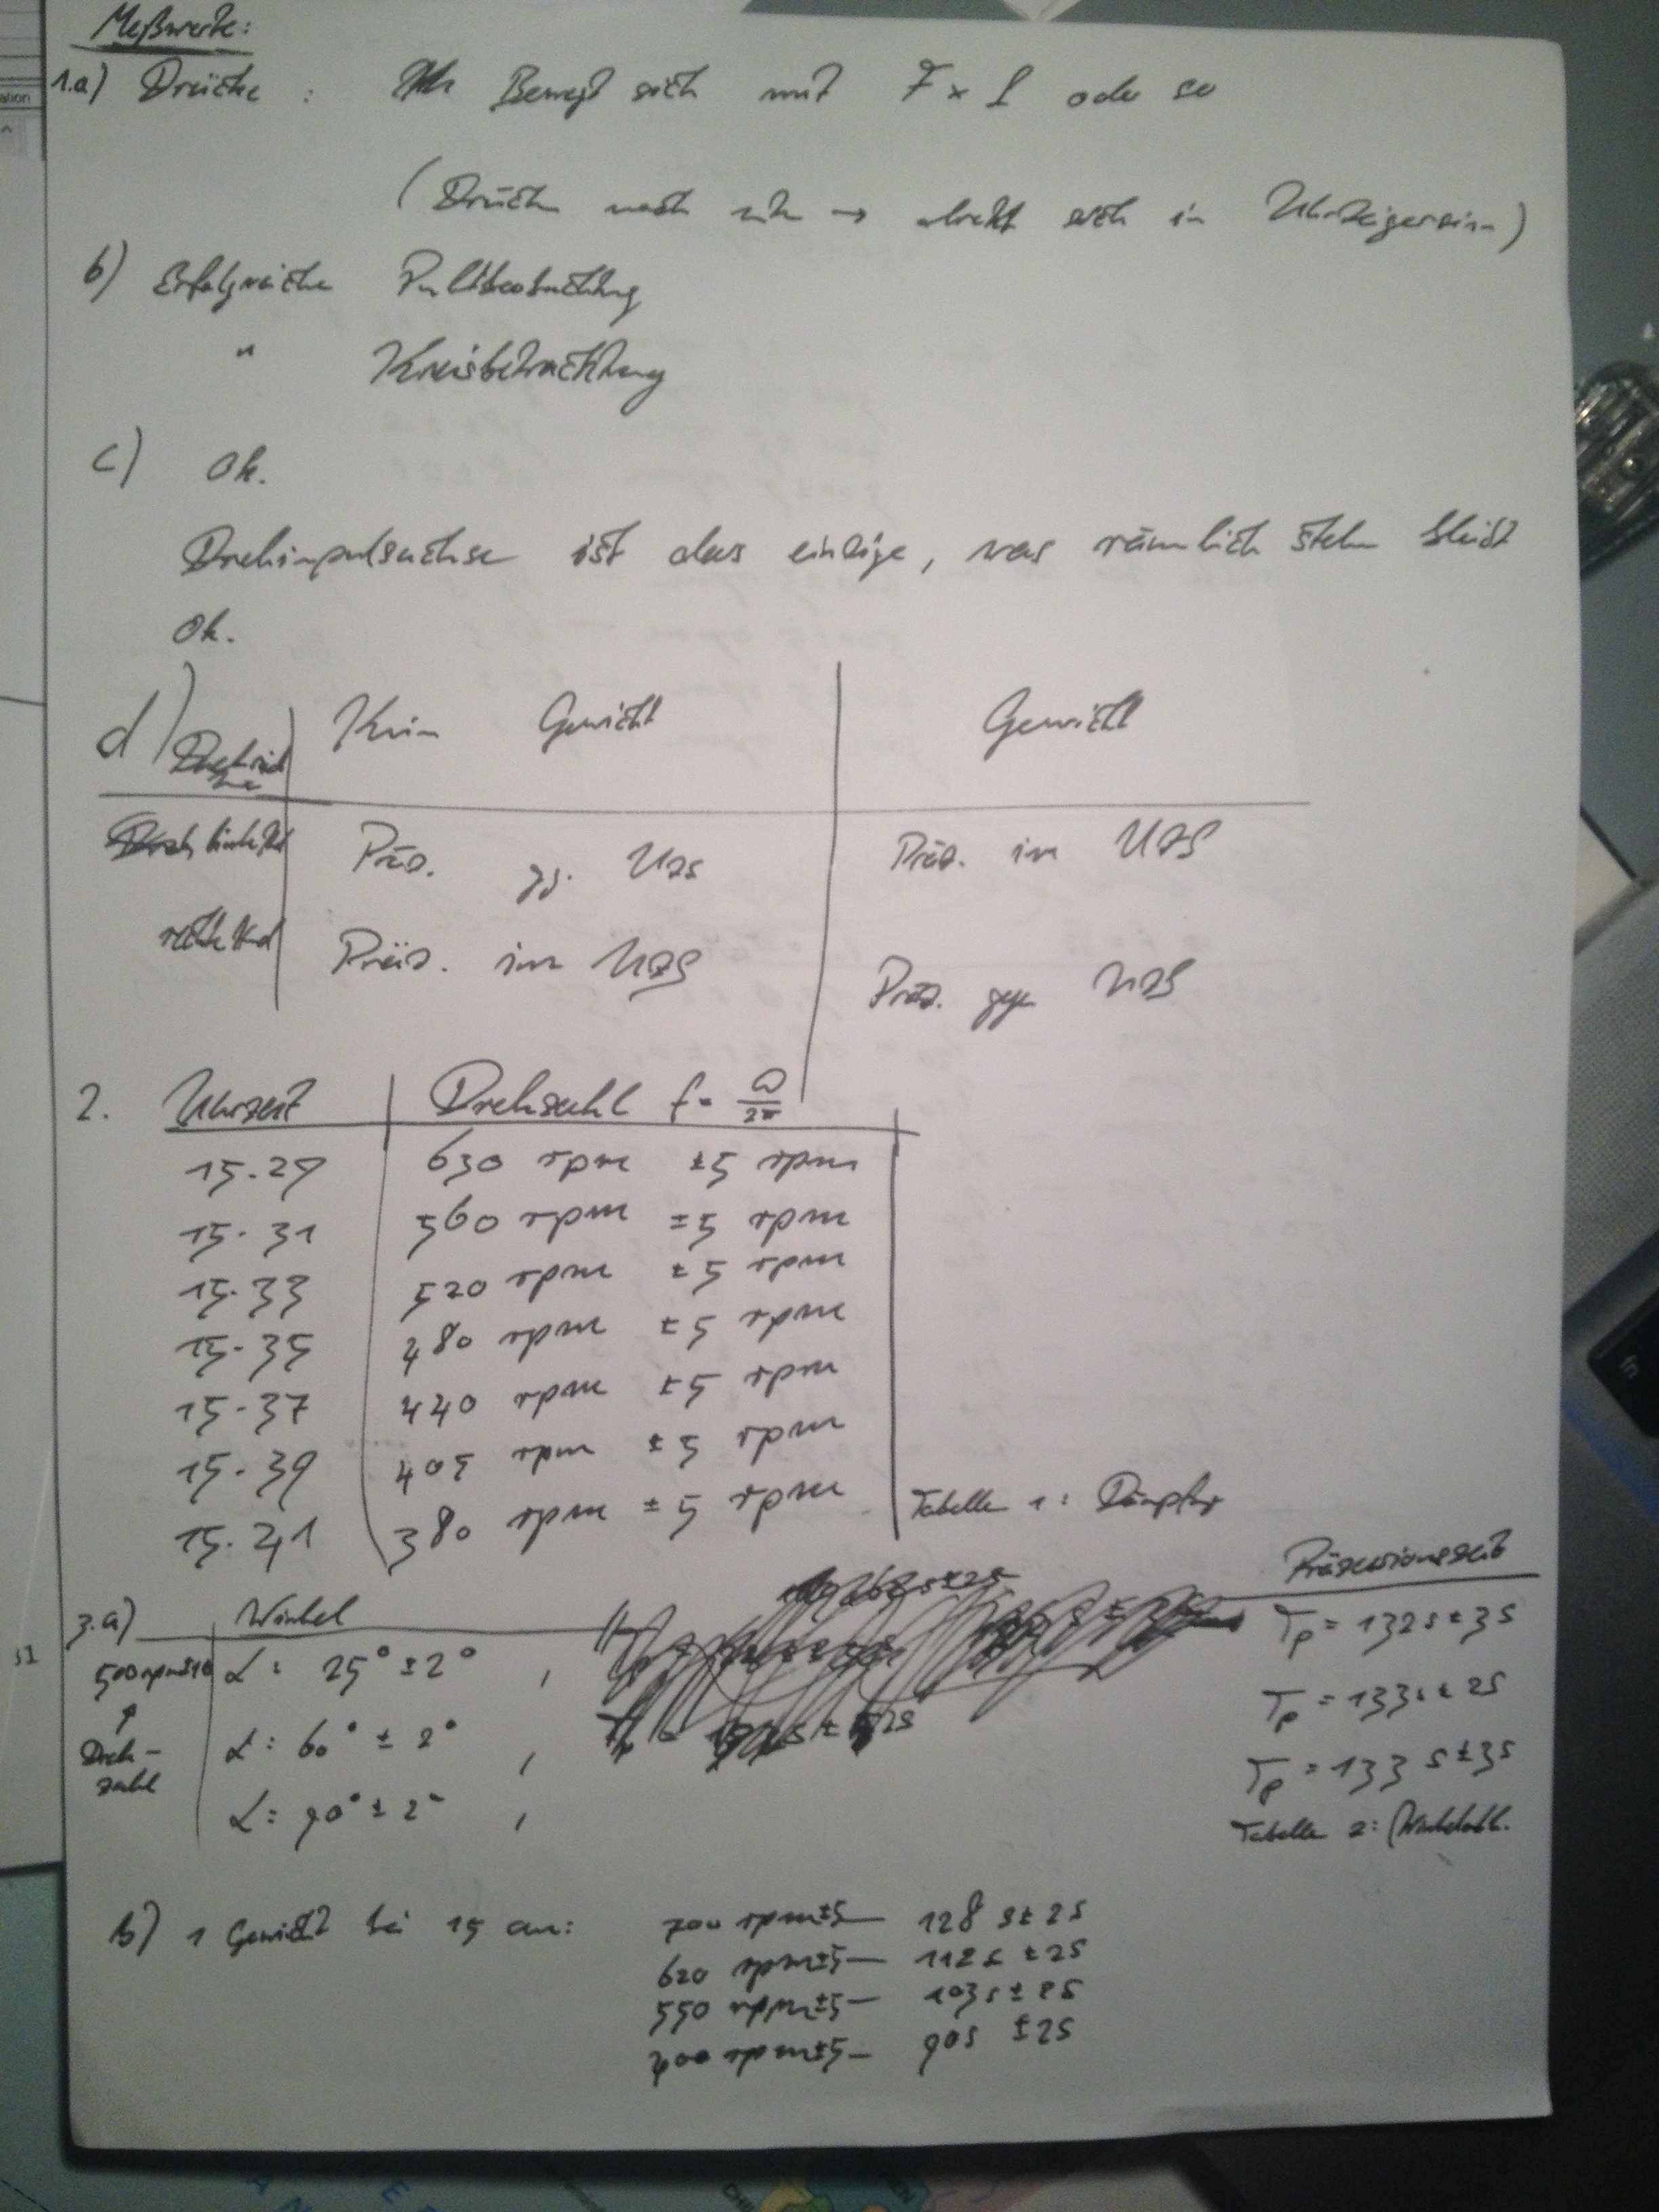 Meßwerte:
1.a) Drücke : Bewegt sich mit F x L oder so
(Drücke nach → dreht sich in Uhrzeigersinn)
b) Erfolgreiche Pultbeobachtung
" Kreisbetrachtung
c) Ok.
Drehimpulsachse ist das einzige, was räumlich stehn bleibt
Ok.
d) Kein Gewicht Gewicht
Präz. gg. UZS Präz. im UZS
Präz. im UZS Präz. gegen UZS
2. Uhrzeit Drehzahl f = ω/2π
15.29 630 rpm ±5 rpm
15.31 560 rpm ±5 rpm
15.33 520 rpm ±5 rpm
15.35 480 rpm ±5 rpm
15.37 440 rpm ±5 rpm
15.39 405 rpm ±5 rpm
15.41 380 rpm ±5 rpm
Tabelle 1: Dämpfung
3.a) Winkel Präzessionszeit
500 rpm±10 α: 25° ±2° , Tp = 132s ± 3s
↑ Drehzahl α: 60° ± 2° , Tp = 133s ± 2s
α: 90° ± 2° , Tp = 133 s ± 3s
Tabelle 2:
b) 1 Gewicht bei 15 cm: 700 rpm±5 — 128 s ± 2s
620 rpm±5 — 112s ± 2s
550 rpm±5 — 103s ± 2s
400 rpm±5 — 90s ± 2s